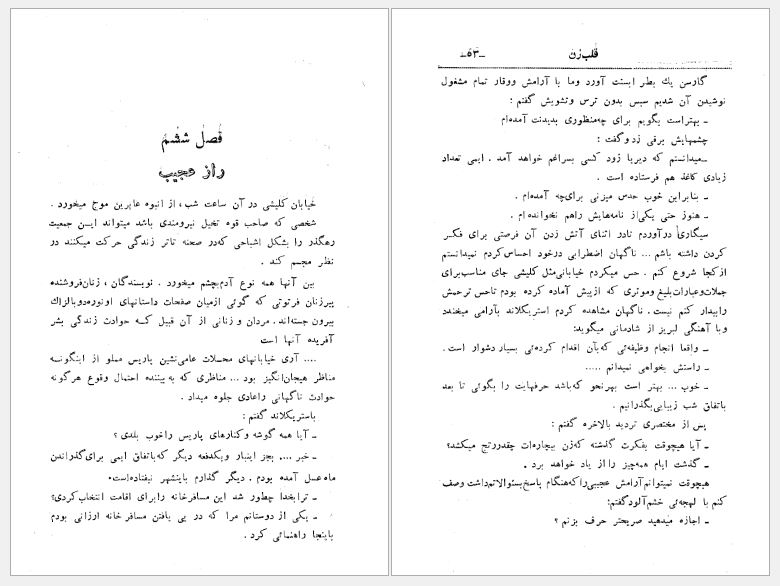 فصل ششم
راز عجیب
خیابان کلیشی در آن ساعت شب، از انبوه عابرین موج میخورد .
شخصی که صاحب قوه تخیل نیرومندی باشد میتواند ایـن جمعیت
رهگذر را بشکل اشباحی که‌در صحنه تاتر زندگی حرکت میکنند در
نظر مجسم کند .
بین آنها همه نوع آدم‌بچشم میخورد . نویسندگان ، زنان‌فروشنده
پیرزنان فرتوتی که گوئی ازمیان صفحات داستانهای اونوره‌دوبالزاك
بیرون جسته‌اند. مردان و زنانی از آن قبیل کـه حوادث زندگی بشر
آفریده آنها است
.... آری خیابانهای محـلات عامی‌نشین پاریس مملو از اینگونـه
مناظر هیجان‌انگیز بود ... مناظری که به‌بیننده احتمال وقوع هرگونه
حوادث ناگهانی راعادی جلوه میداد .
باستریکلاند گفتم :
ـ آیا همه گوشه وکنارهای پاریس راخوب بلدی ؟
ـ خیر .... بجز اینبار ویکدفعه دیگر که‌باتفاق ایمی برای‌گذراندن
ماه‌عسل آمده بودم . دیگر گذارم باینشهر نیفتاده‌است.
ـ ترابخدا چطور شد این مسافرخانه رابرای اقامت انتخاب‌کردی؟
ـ یکی از دوستانم مرا که در پی یافتن مسافر خانه ارزانی بودم
باینجا راهنمائی کرد .
قلب‌زن
ـ۵۳ـ
گارسن یك بطر ابسنت آورد وما با آرامش ووقار تمام مشغول
نوشیدن آن شدیم سپس بدون ترس وتشویش گفتم :
ـ بهتراست بگویم برای چه‌منظوری بدیدنت آمده‌ام
چشمهایش برقی زد وگفت :
ـ میدانستم که دیریا زود کسی بسراغم خواهد آمد . ایمی تعداد
زیادی کاغذ هم فرستاده است .
ـ بنابراین خوب حدس میزنی برای‌چه آمده‌ام .
ـ هنوز حتی یکی‌از نامه‌هایش راهم نخوانده‌ام .
سیگاری درآوردم تادر اثنای آتش زدن آن فرصتی برای فکـر
کردن داشته باشم ... ناگهان اضطرابی درخود احساس‌کردم نمیدانستم
ازکجا شروع کنم . حس میکردم خیابانی‌مثل کلیشی جای مناسب‌برای
جملات‌وعبارات‌بلیغ‌وموثری که ازپیش آماده کرده بودم تاحس ترحمش
رابیدار کنم نیست . ناگهان مشاهده کردم استریکلاند بآرامی میخندد
وبا آهنگی لبریز از شادمانی میگوید:
ـ واقعا انجام وظیفه‌ئی که‌بآن اقدام کرده‌ئی بسیار دشوار است .
ـ راستش بخواهی نمیدانم .....
ـ خوب ... بهتر است بهرنحو که‌باشد حرفهایت را بگوئی تا بعد
باتفاق شب زیبایی‌بگذرانیم .
پس از مختصری تردید بالاخره گفتم :
ـ آیا هیچوقت بفکرت گذشته که‌زن بیچاره‌ات چقدررنج میکشد؟
ـ گذشت ایام همه‌چیز را از یاد خواهد برد .
هیچوقت نمیتوانم‌آرامش عجیبی‌راکه‌هنگام پاسخ‌بسئوالاتم‌داشت وصف
کنم با لهجه‌ئی خشم‌آلودگفتم:
ـ اجازه میدهید صریحتر حرف بزنم ؟